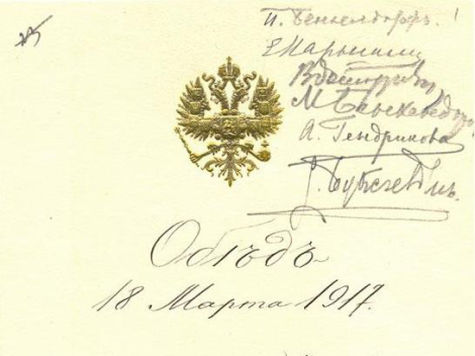 П. Бенкендорфъ.
Е Нарышкина
В Долгоруковъ
М Бенкендорфъ
А. Гендрикова
Обѣдъ
18 Марта 1917.